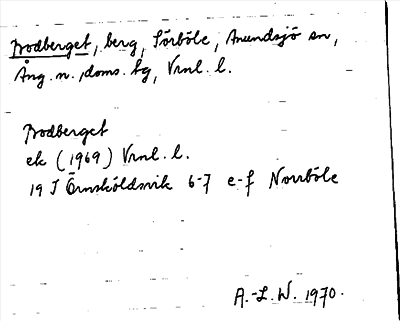 Brodberget, berg, Sörböle, Anundsjö sn,
Ång. n., doms. hg, Vrnl. l.
Brodberget
ek (1969) Vrnl. l.
19 J Örnsköldsvik 6-7 e-f Norrböle
A.-L. W. 1970.